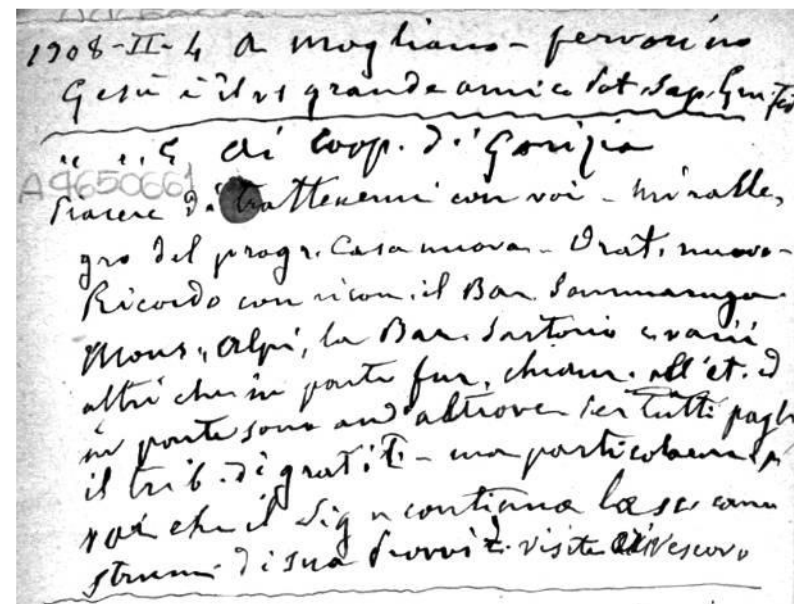 1908-II-4 A Mogliano - fervorino
Gesù è il vs grande amico Pot. Sap.
" " 5 Ai coop. di Gorizia
A9650661
Piacere di trattenermi con voi - Mi ralle,
gro del progr. Casa nuova - Orat. nuovo -
Ricordo con ricon. il Bar. Sommaruga
Mons. Alpi, la Bar. Sartorio e varii
altri che in parte fur. chiam. all'et. ed
in parte sono and. altrove. Per tutti pagh
il trib. di gratit. - ma particolarm. p
voi che il Sig continua
strum di sua Provvid. visite Arcivescovo